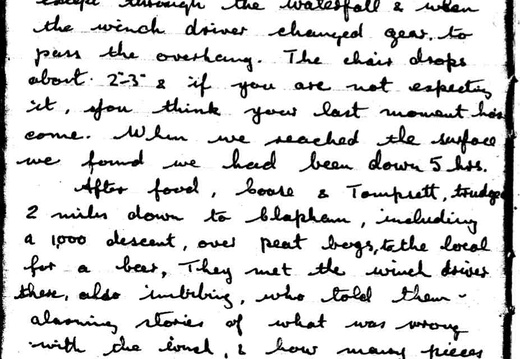 except through the waterfall & when
the winch driver changed gear to
pass the overhang. The chair drops
about 2"-3" & if you are not expecting
it, you think your last moment has
come. When we reached the surface
we found we had been down 5 hrs.
After food, Coase & Tompsett, trudged
2 miles down to Clapham, including
a 1,000 descent, over peat bogs, to the local
for a beer, They met the winch driver
there, also imbibing, who told them
alarming stories of what was wrong
with the winch, & how many pieces